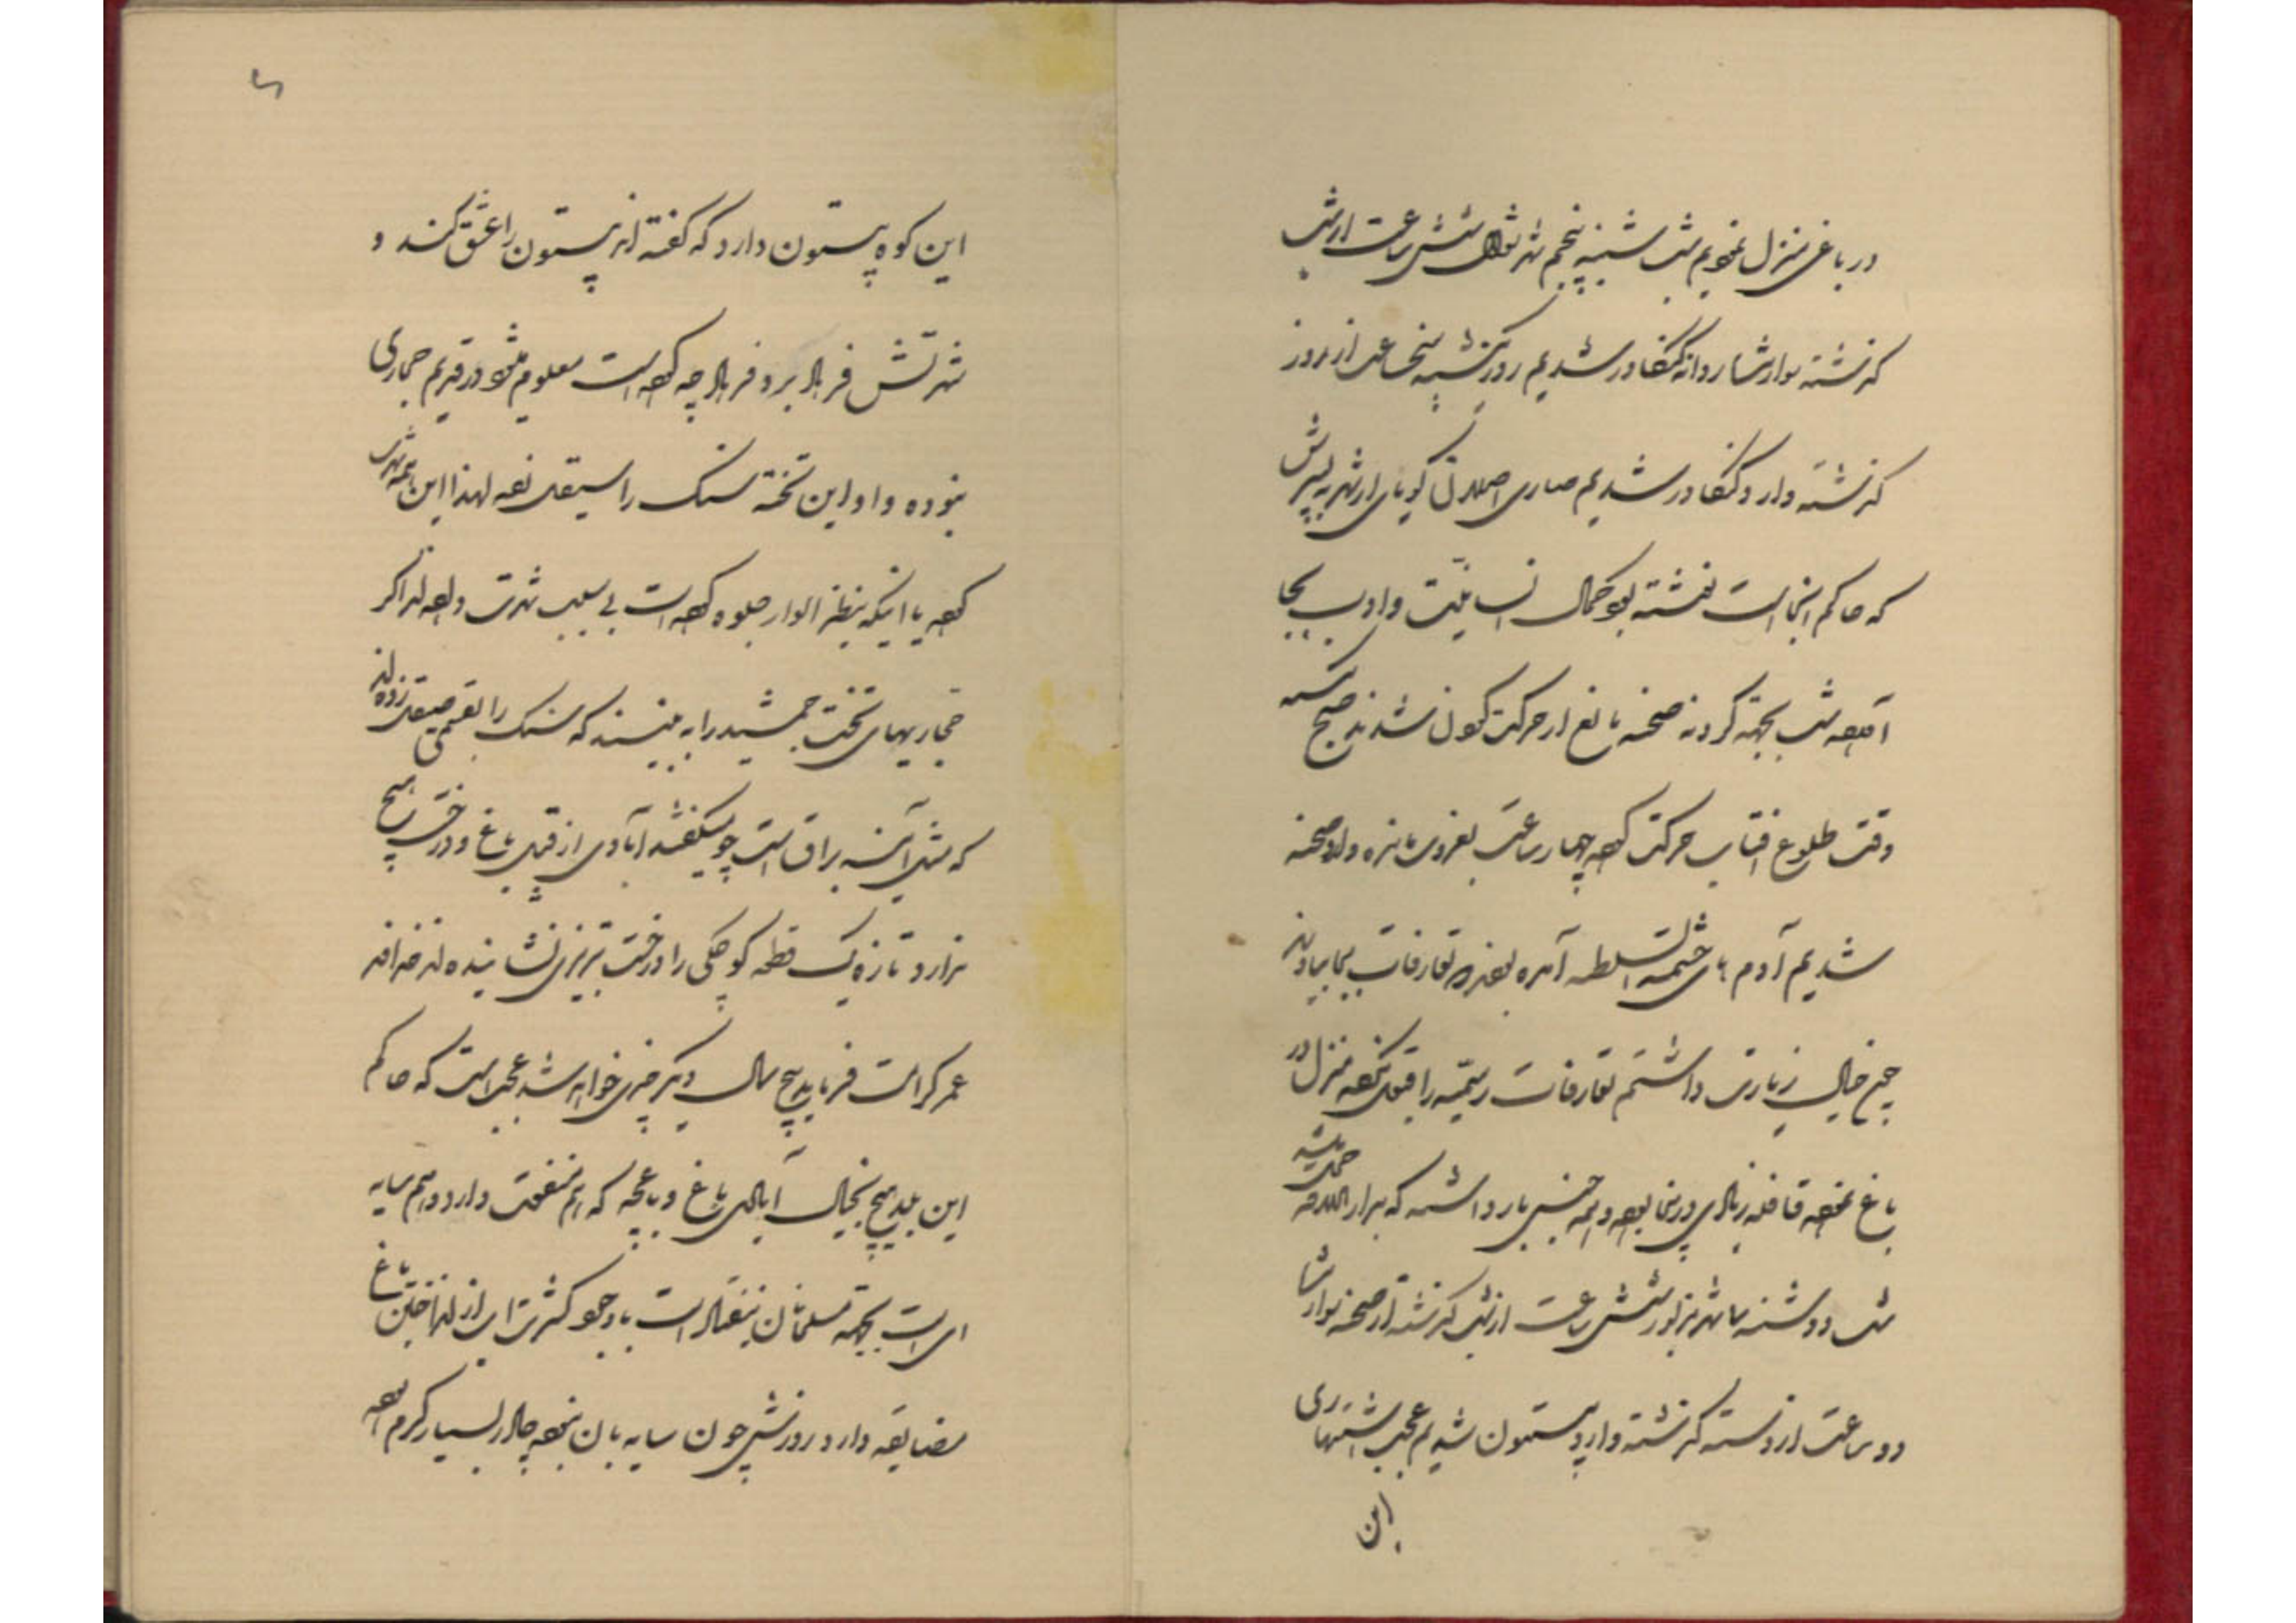 در باغی منزل نمودیم شب شنبه پنجم شهر شوال شش ساعت از شب
گذشته سوار شده روانه کنگاور شدیم روز شنبه پنج ساعت از روز
گذشته وارد کنگاور شدیم صاری اصلان گویا از شهر به پسرش
که حاکم اینجا است نوشته بود کمال انسانیت و ادب بجا
آورد شب بجهت گردنه صحنه مانع از حرکت کردن شدند صبح یکشنبه
وقت طلوع افتاب حرکت کرده چهار ساعت بغروب مانده وارد صحنه
شدیم آدم های حشمت السلطنه آمده بودند تعارفات بجا بیاورند
چون خیال زیارت داشتم تعارفات رسمیه را قبول نکرده منزل در
باغ نموده قافله زیادی در اینجا بوده و همه جنس بار داشته که بدار الخلافه حمل شد
شب دوشنبه باز شش ساعت از شب گذشته از صحنه سوار شده
دو ساعت از دسته گذشته وارد بیستون شدیم عجب اشتهاری
این
این کوه بیستون دارد که گفته اند بیستون را عشق کند و
شهرتش فرهاد برد فرهاد چه کرده است معلوم میشود در قدیم حجاری
بنوده و او این تخته سنگ را سیقل نموده لهذا این همه شهرت
کرده یا اینکه بنظر الوار جلوه کرده است بی سبب شهرت داده اند اگر
حجاریهای تخت جمشید را به بینند که سنگ را بقسمی صیقل زده اند
که مثل آینه براق است چه میگفتند آبادی از قبیل باغ و درخت هیچ
ندارد تازه یک قطعه کوچکی را درخت تبریزی نشانیده اند
عمر گر امت فرماید پنج سال دیگر چیزی خواهد شد عجب است که حاکم
این بلد هیچ بخیال آبادی باغ و باغچه که هم منفعت دارد و هم سایه
ای است بجهت مسلمانان نیفتاده است با وجود کثرت آب از انداختن باغ
مضایقه دارد روزش چون سایه بان نبود چادر بسیار گرم بود